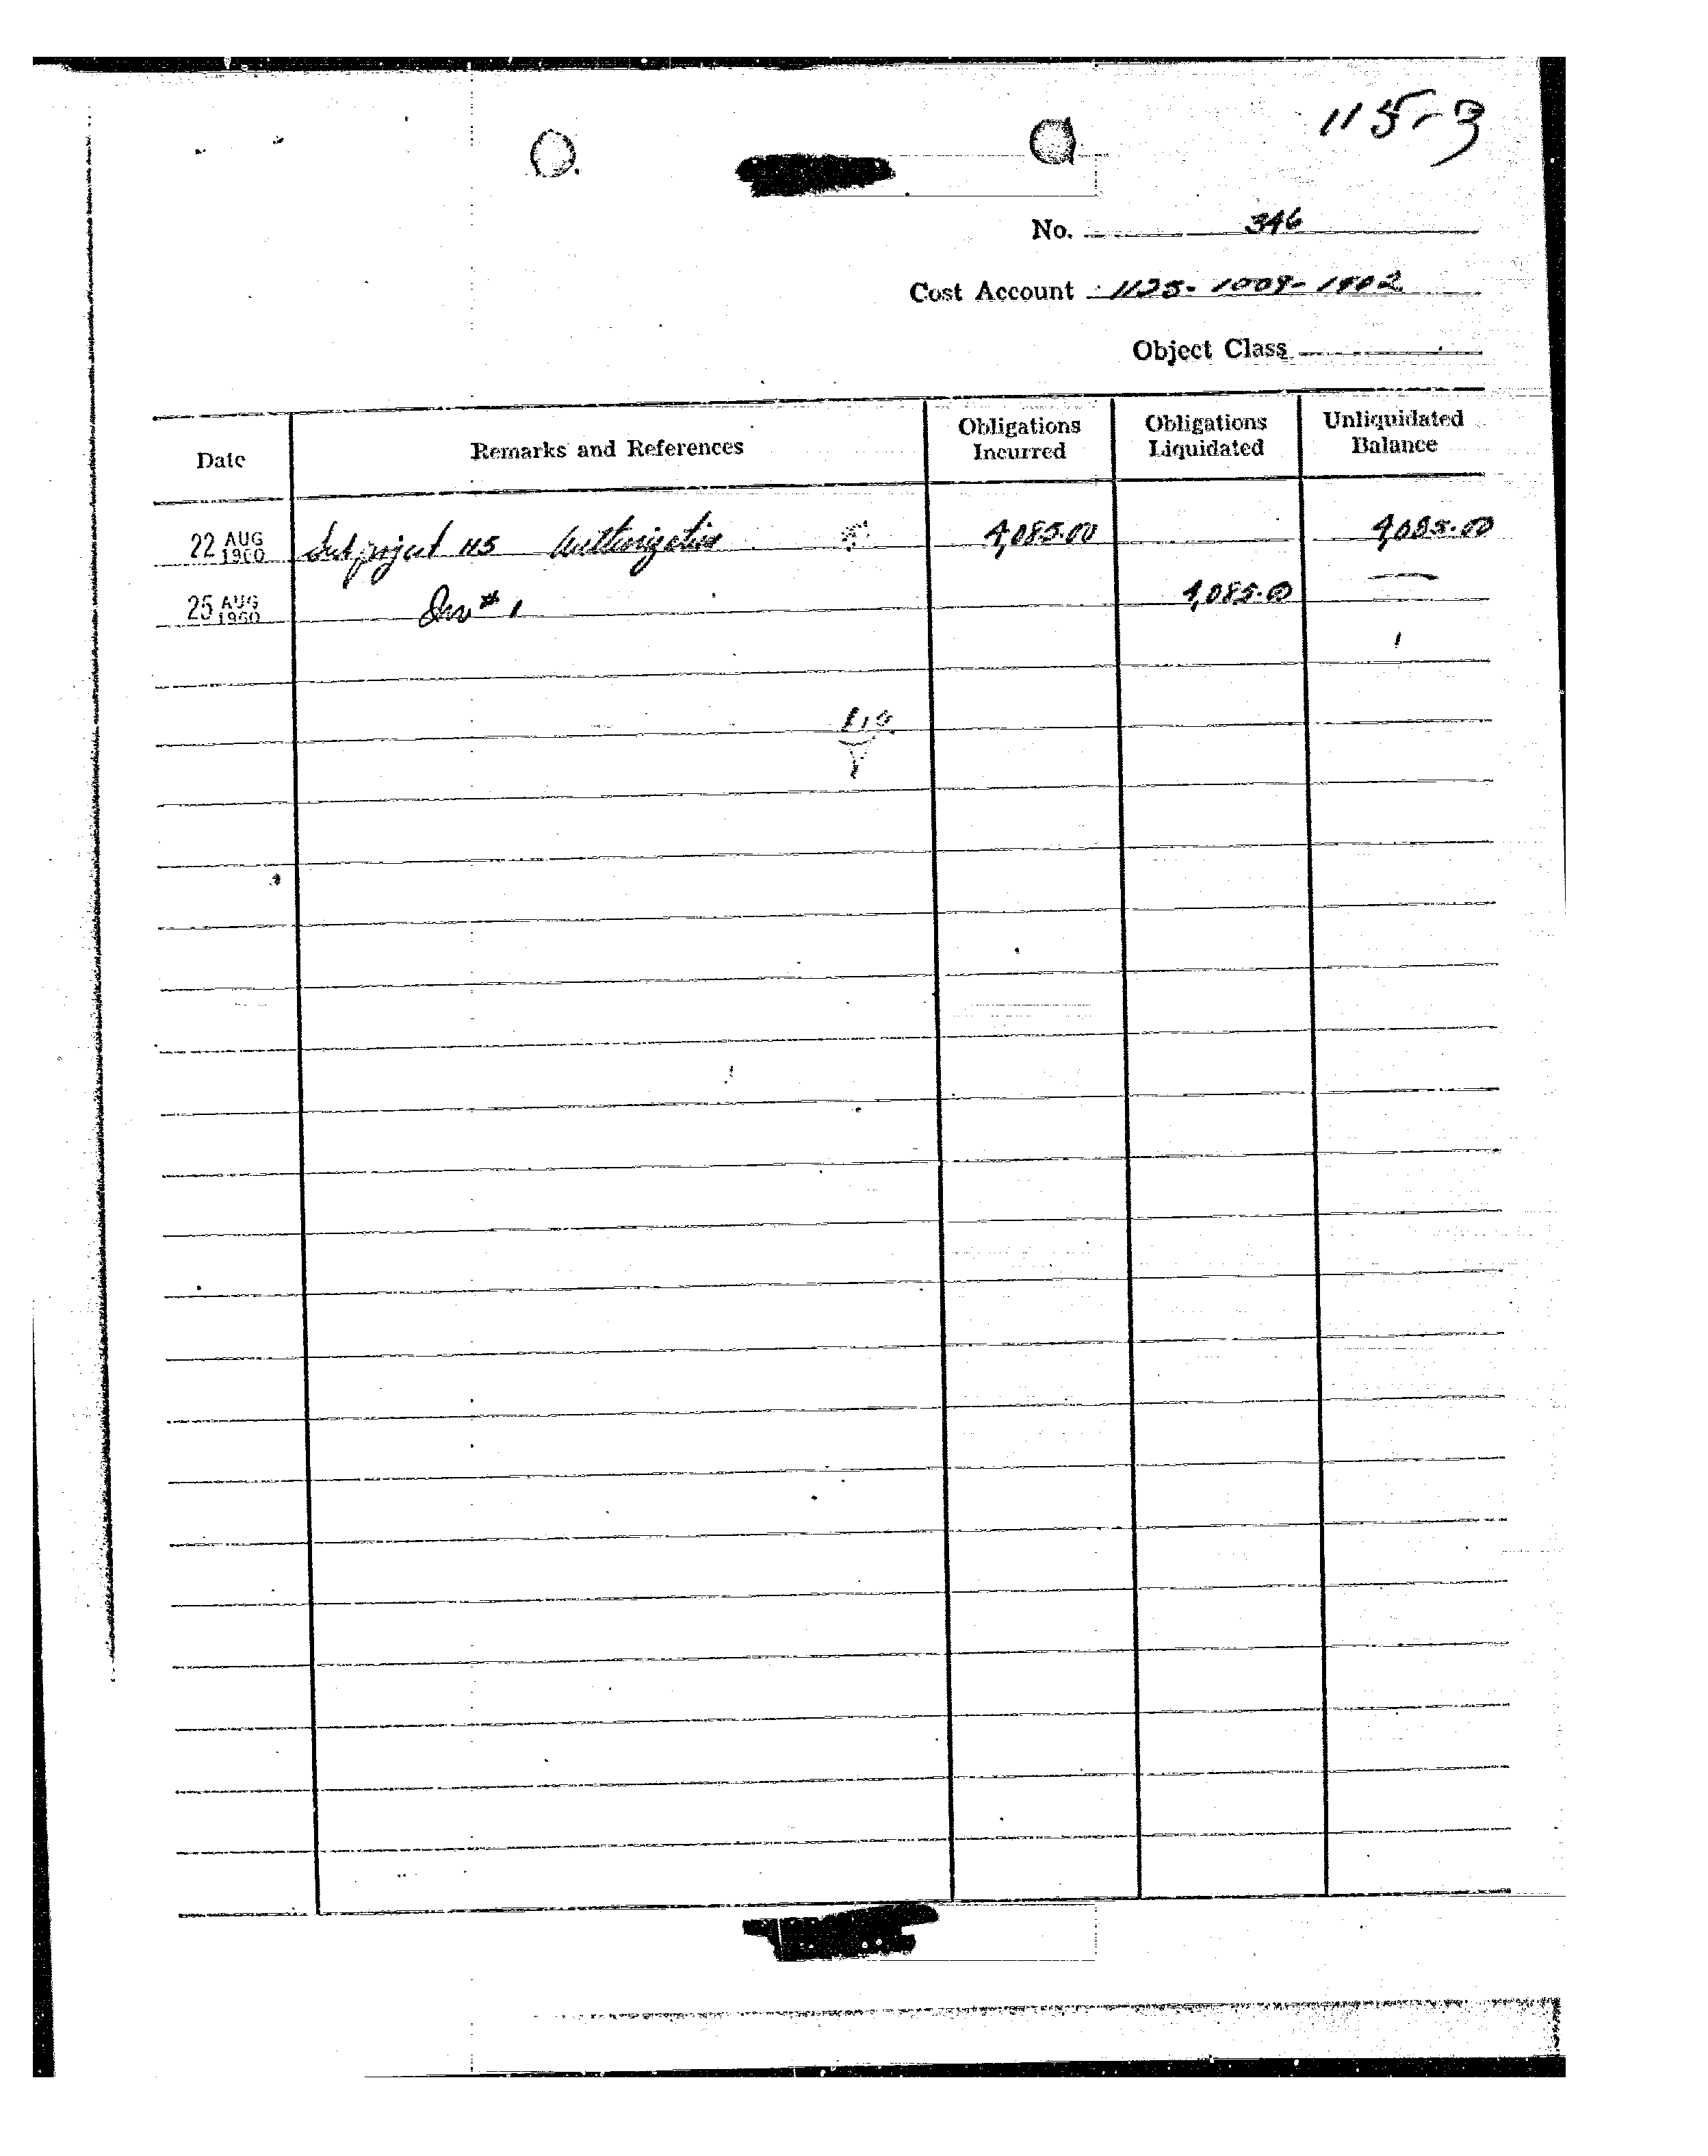 115-3
No. 346
Cost Account 1125-1009-1902
Object Class
Date Remarks and References Obligations Incurred Obligations Liquidated Unliquidated Balance
22 AUG 1960 Subproject 115 Authorization 4,085.00 4,085.00
25 AUG 1960 Inv # 1 4,085.00 —